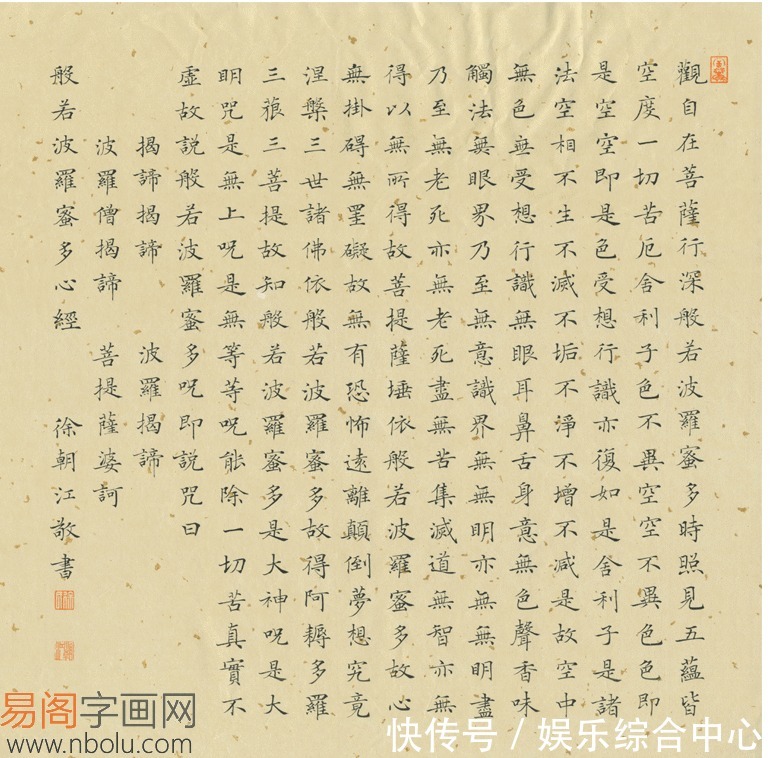 觀自在菩薩行深般若波羅蜜多時照見五蘊皆
空度一切苦厄舍利子色不異空空不異色色即
是空空即是色受想行識亦復如是舍利子是諸
法空相不生不滅不垢不淨不增不減是故空中
無色無受想行識無眼耳鼻舌身意無色聲香味
觸法無眼界乃至無意識界無無明亦無無明盡
乃至無老死亦無老死盡無苦集滅道無智亦無
得以無所得故菩提薩埵依般若波羅蜜多故心
無掛碍無罣礙故無有恐怖遠離顛倒夢想究竟
涅槃三世諸佛依般若波羅蜜多故得阿耨多羅
三藐三菩提故知般若波羅蜜多是大神咒是大
明咒是無上咒是無等等咒能除一切苦真實不
虛故說般若波羅蜜多咒即說咒曰
揭諦揭諦 波羅揭諦
波羅僧揭諦 菩提薩婆訶
般若波羅蜜多心經 徐朝江敬書
易阁字画网
www.nbolu.com
快传号 / 娱乐综合中心